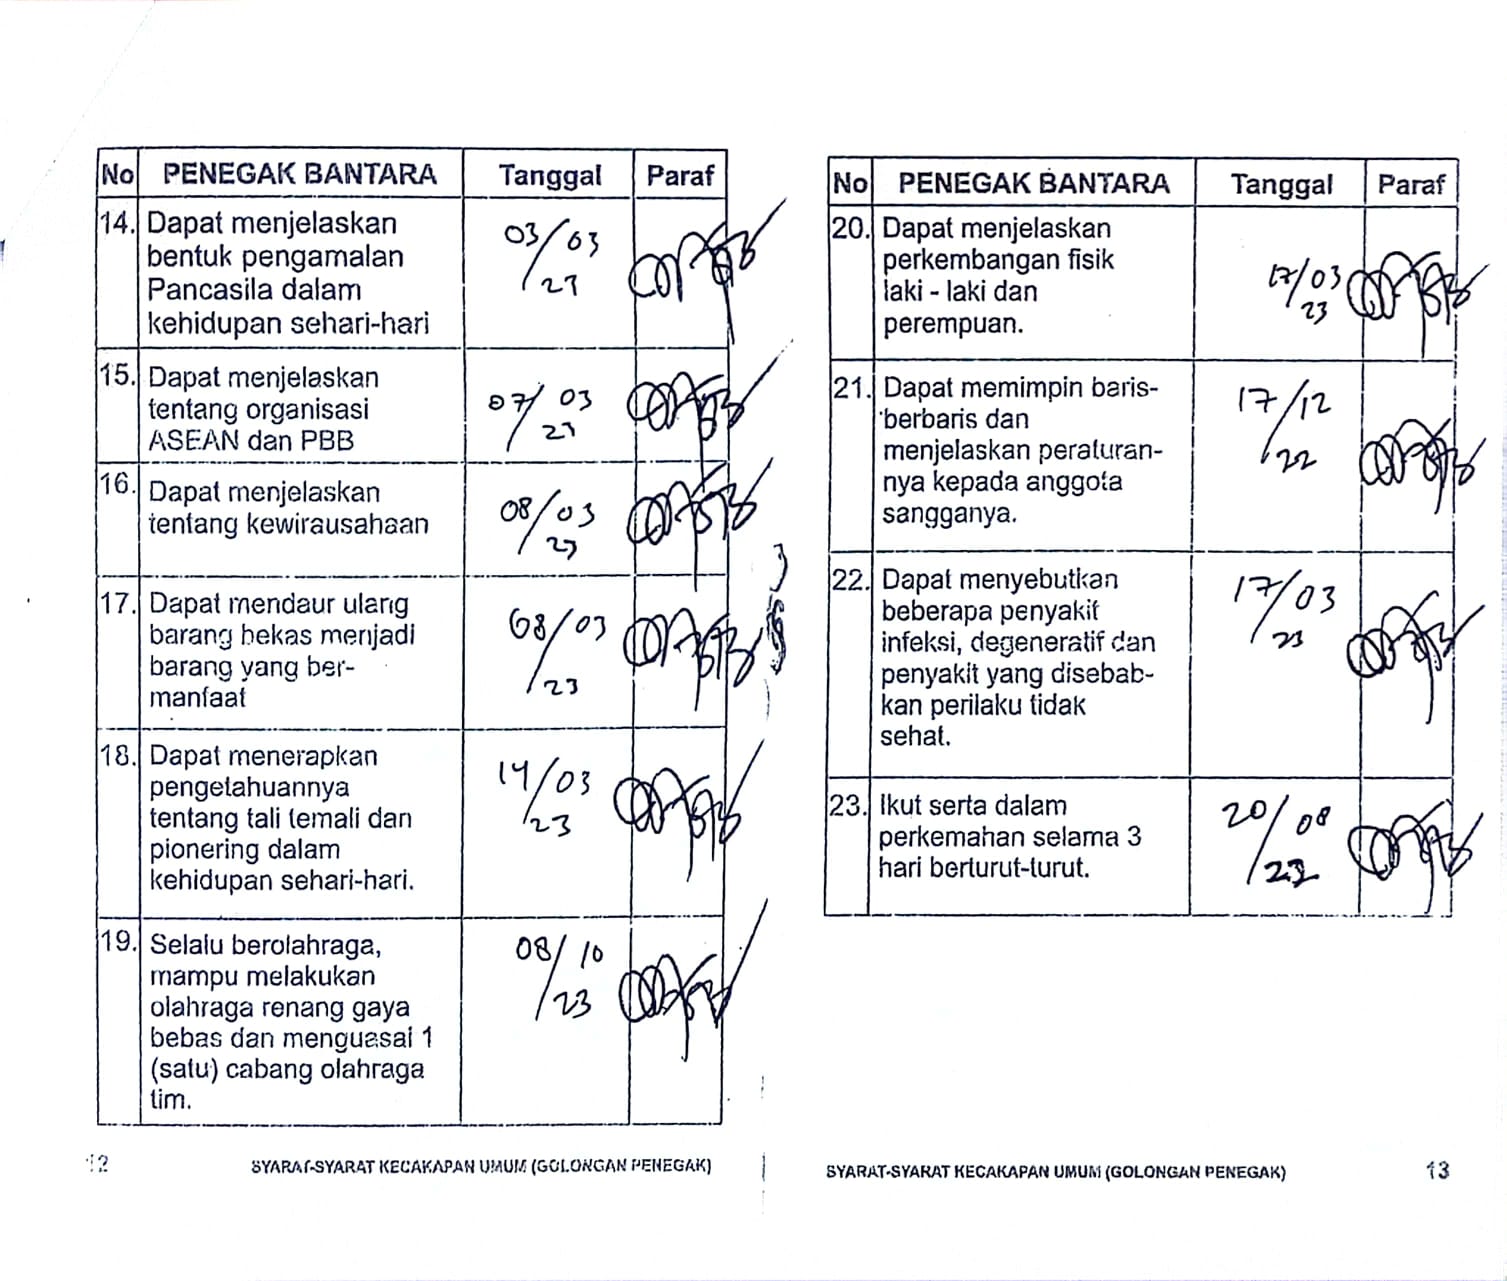 No PENEGAK BANTARA Tanggal Paraf
14. Dapat menjelaskan
bentuk pengamalan
Pancasila dalam
kehidupan sehari-hari
03/03
23
15. Dapat menjelaskan
tentang organisasi
ASEAN dan PBB
07/03
23
16. Dapat menjelaskan
tentang kewirausahaan
08/03
23
17. Dapat mendaur ulang
barang bekas menjadi
barang yang ber-
manfaat
08/03
23
18. Dapat menerapkan
pengetahuannya
tentang tali temali dan
pionering dalam
kehidupan sehari-hari.
14/03
23
19. Selalu berolahraga,
mampu melakukan
olahraga renang gaya
bebas dan menguasai 1
(satu) cabang olahraga
tim.
08/10
23
12 SYARAT-SYARAT KECAKAPAN UMUM (GOLONGAN PENEGAK)
No PENEGAK BANTARA Tanggal Paraf
20. Dapat menjelaskan
perkembangan fisik
laki - laki dan
perempuan.
17/03
23
21. Dapat memimpin baris-
berbaris dan
menjelaskan peraturan-
nya kepada anggota
sangganya.
17/12
22
22. Dapat menyebutkan
beberapa penyakit
infeksi, degeneratif dan
penyakit yang disebab-
kan perilaku tidak
sehat.
17/03
23
23. Ikut serta dalam
perkemahan selama 3
hari berturut-turut.
20/08
SYARAT-SYARAT KECAKAPAN UMUM (GOLONGAN PENEGAK) 13